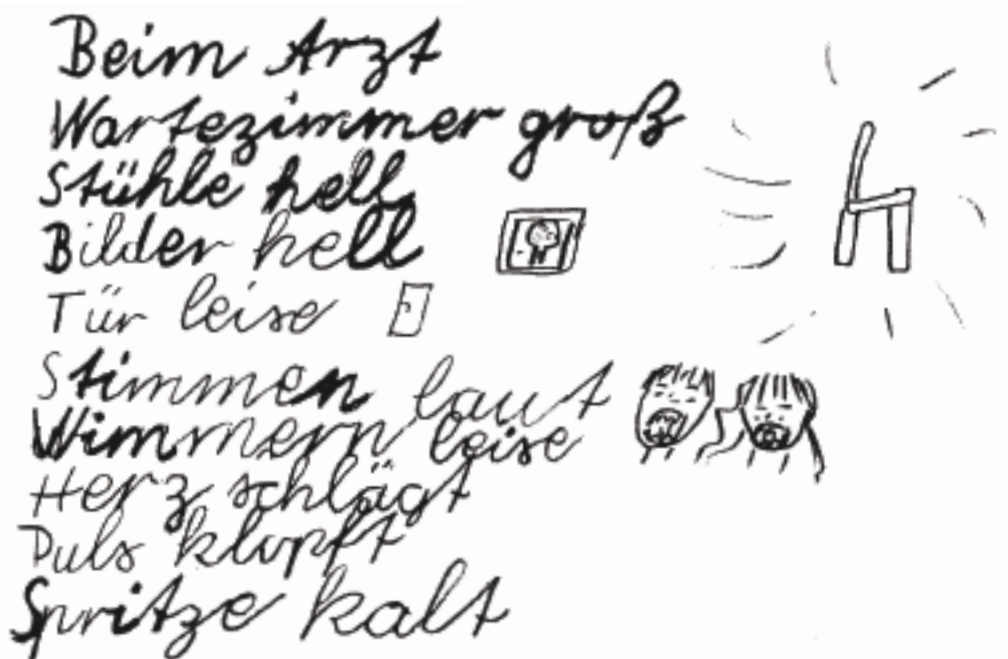 Beim Arzt
Wartezimmer groß
Stühle hell
Bilder hell
Tür leise
Stimmen laut
Wimmern leise
Herz schlägt
Puls klopft
Spritze kalt